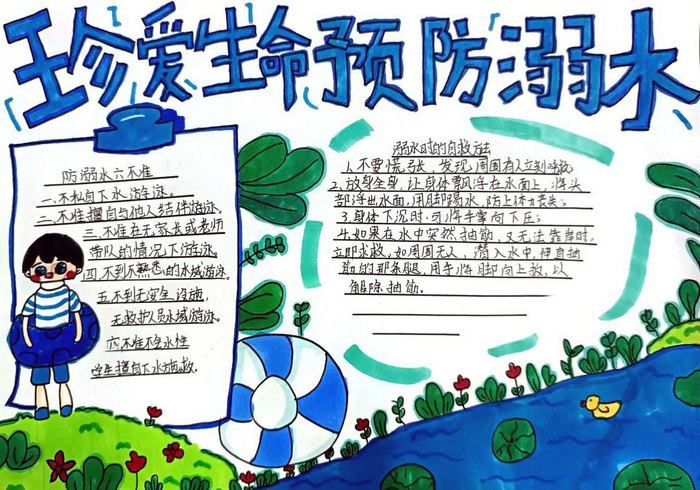 珍爱生命预防溺水
防溺水六不准
一.不私自下水游泳。
二.不准擅自与他人结伴游泳。
三.不准在无家长或老师
带队的情况下游泳。
四.不到不熟悉的水域游泳。
五不到无安全设施,
无救护人员水域游泳。
六不准不会水性
学生擅自下水施救.
溺水时的自救方法
1.不要慌张,发现周围有人立刻呼救;
2.放松全身,让身体飘浮在水面上,将头
部浮出水面,用脚踢水,防止体力丧失;
3.身体下沉时,可将手掌向下压;
4.如果在水中突然抽筋,又无法靠岸时,
立即求救,如周围无人,潜入水中,伸直抽
筋的那条腿,用手将脚向上救,以
解除抽筋.